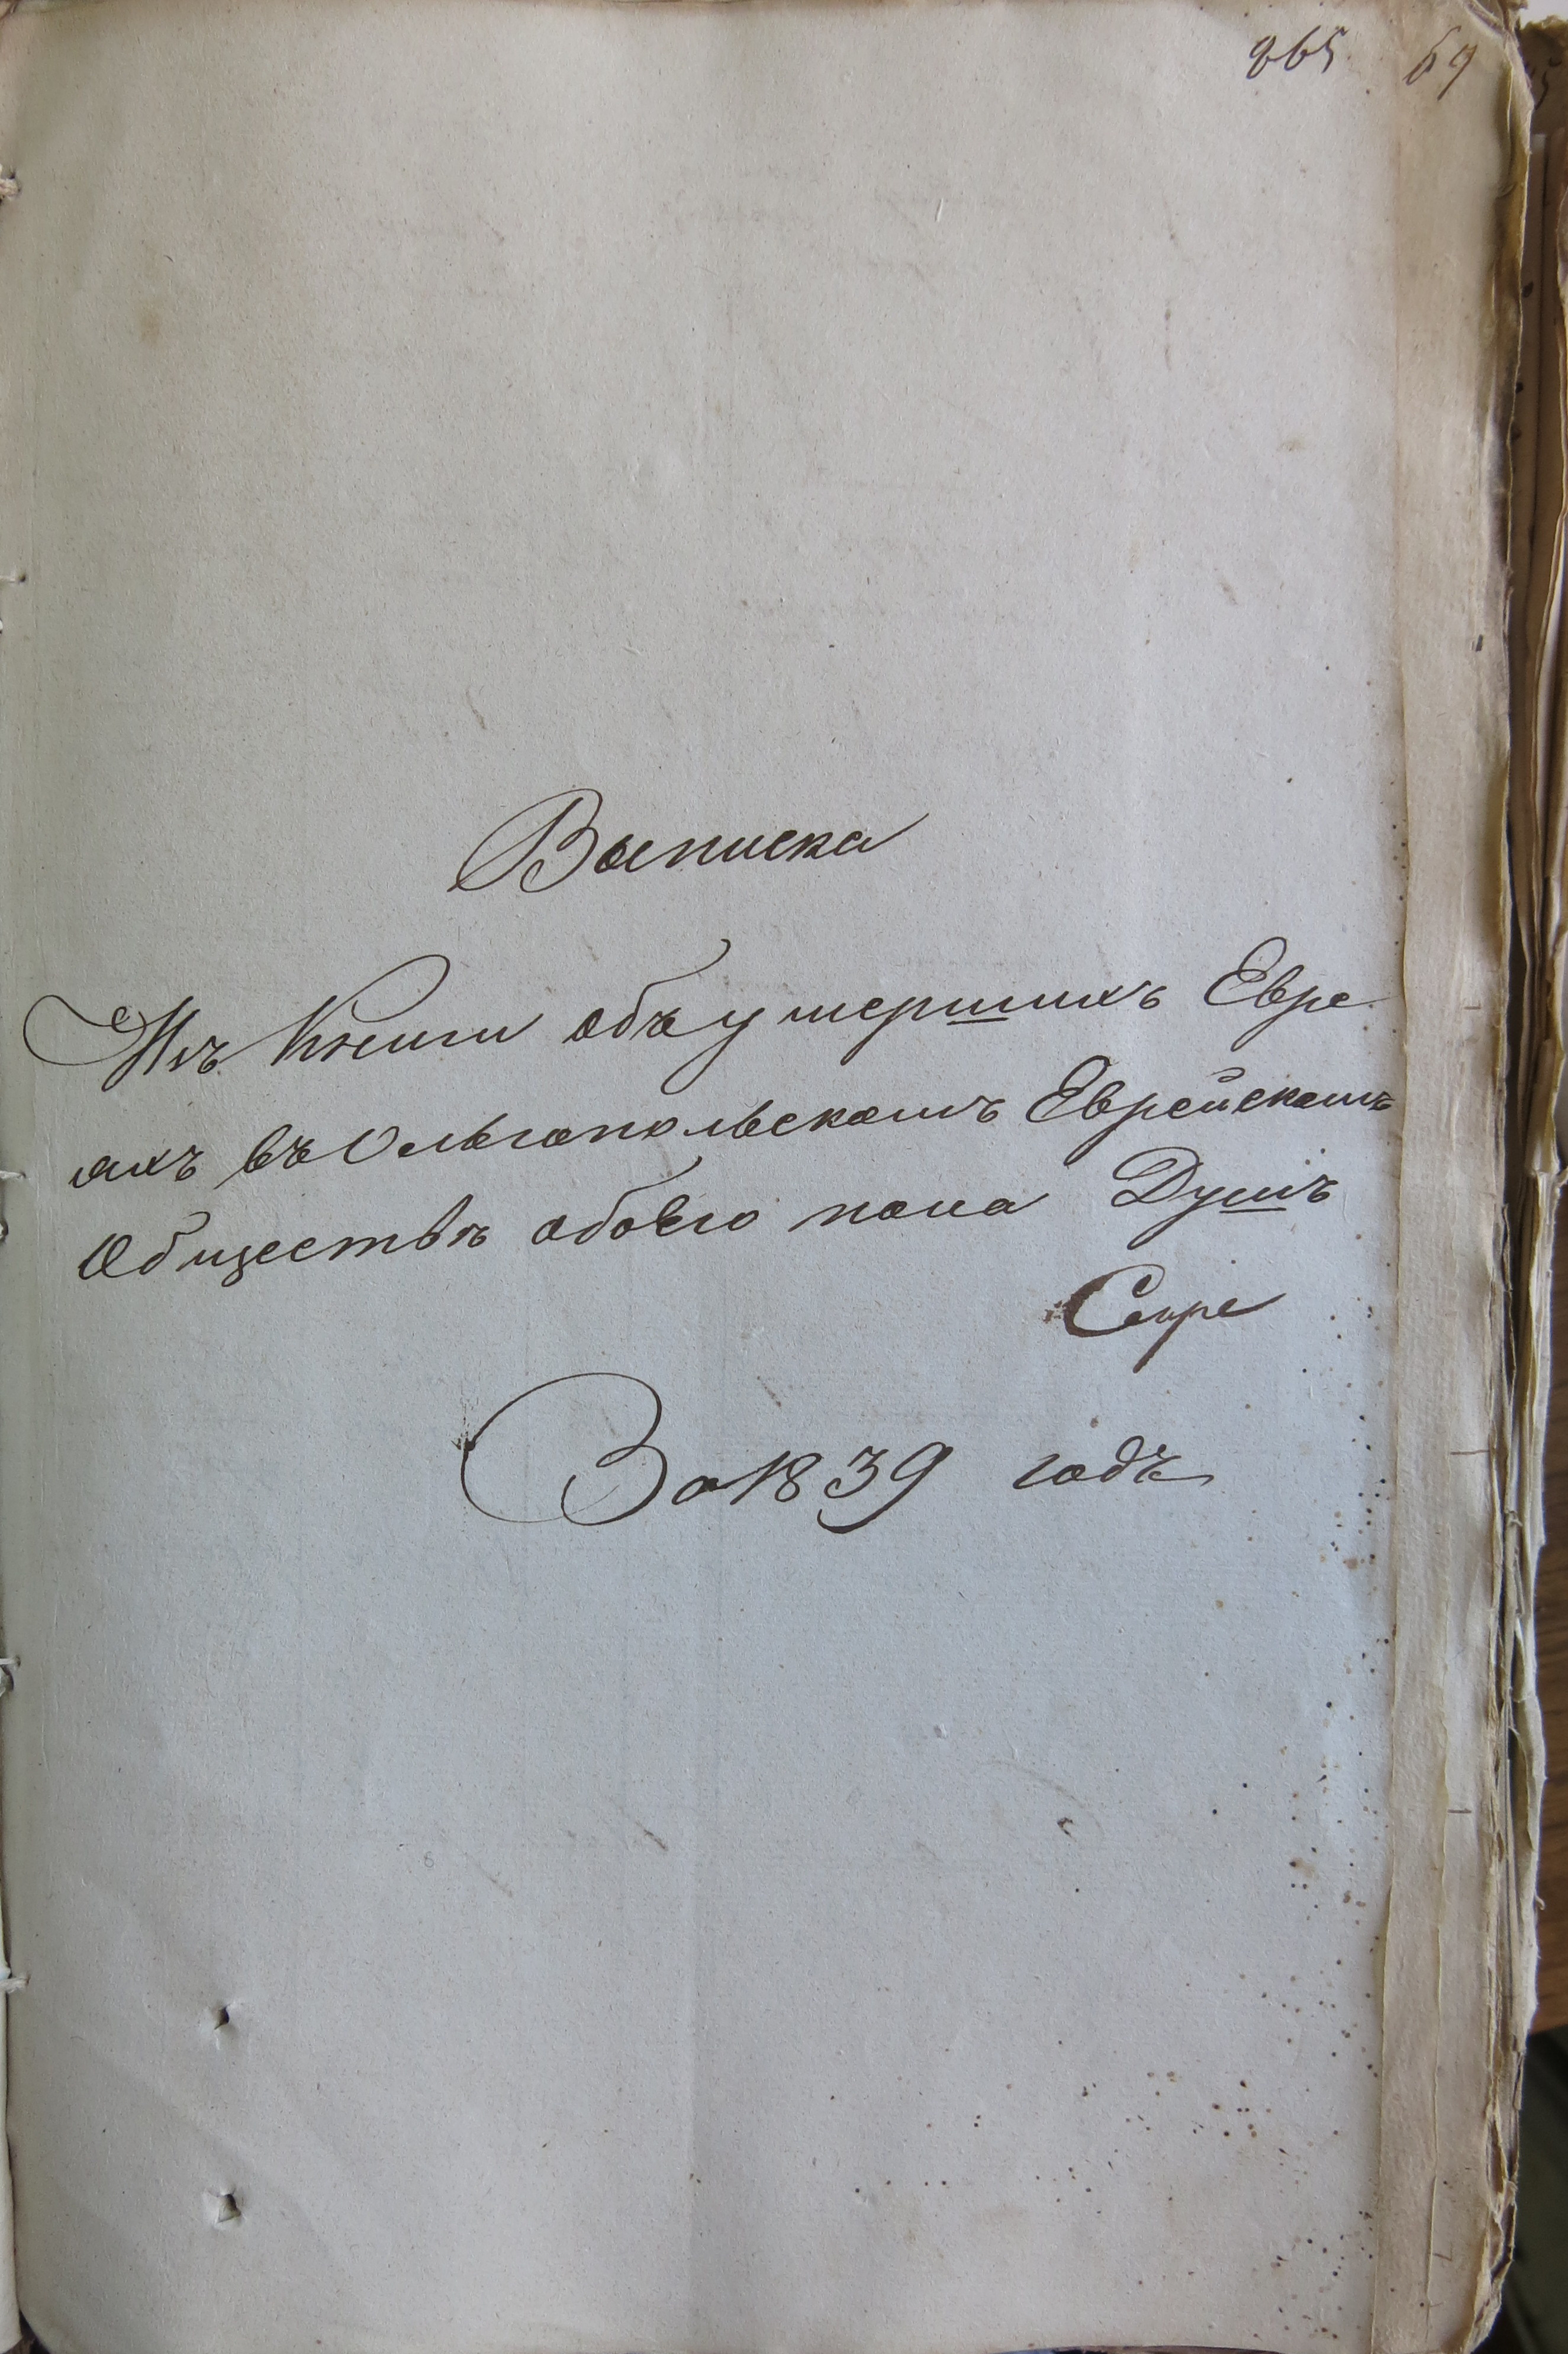 865 69
Выписка
Изъ Книги объ умершихъ Евре-
яхъ въ Ольгопольскомъ Еврейскомъ
Обществѣ обоего пола Душъ
За 1839 годъ